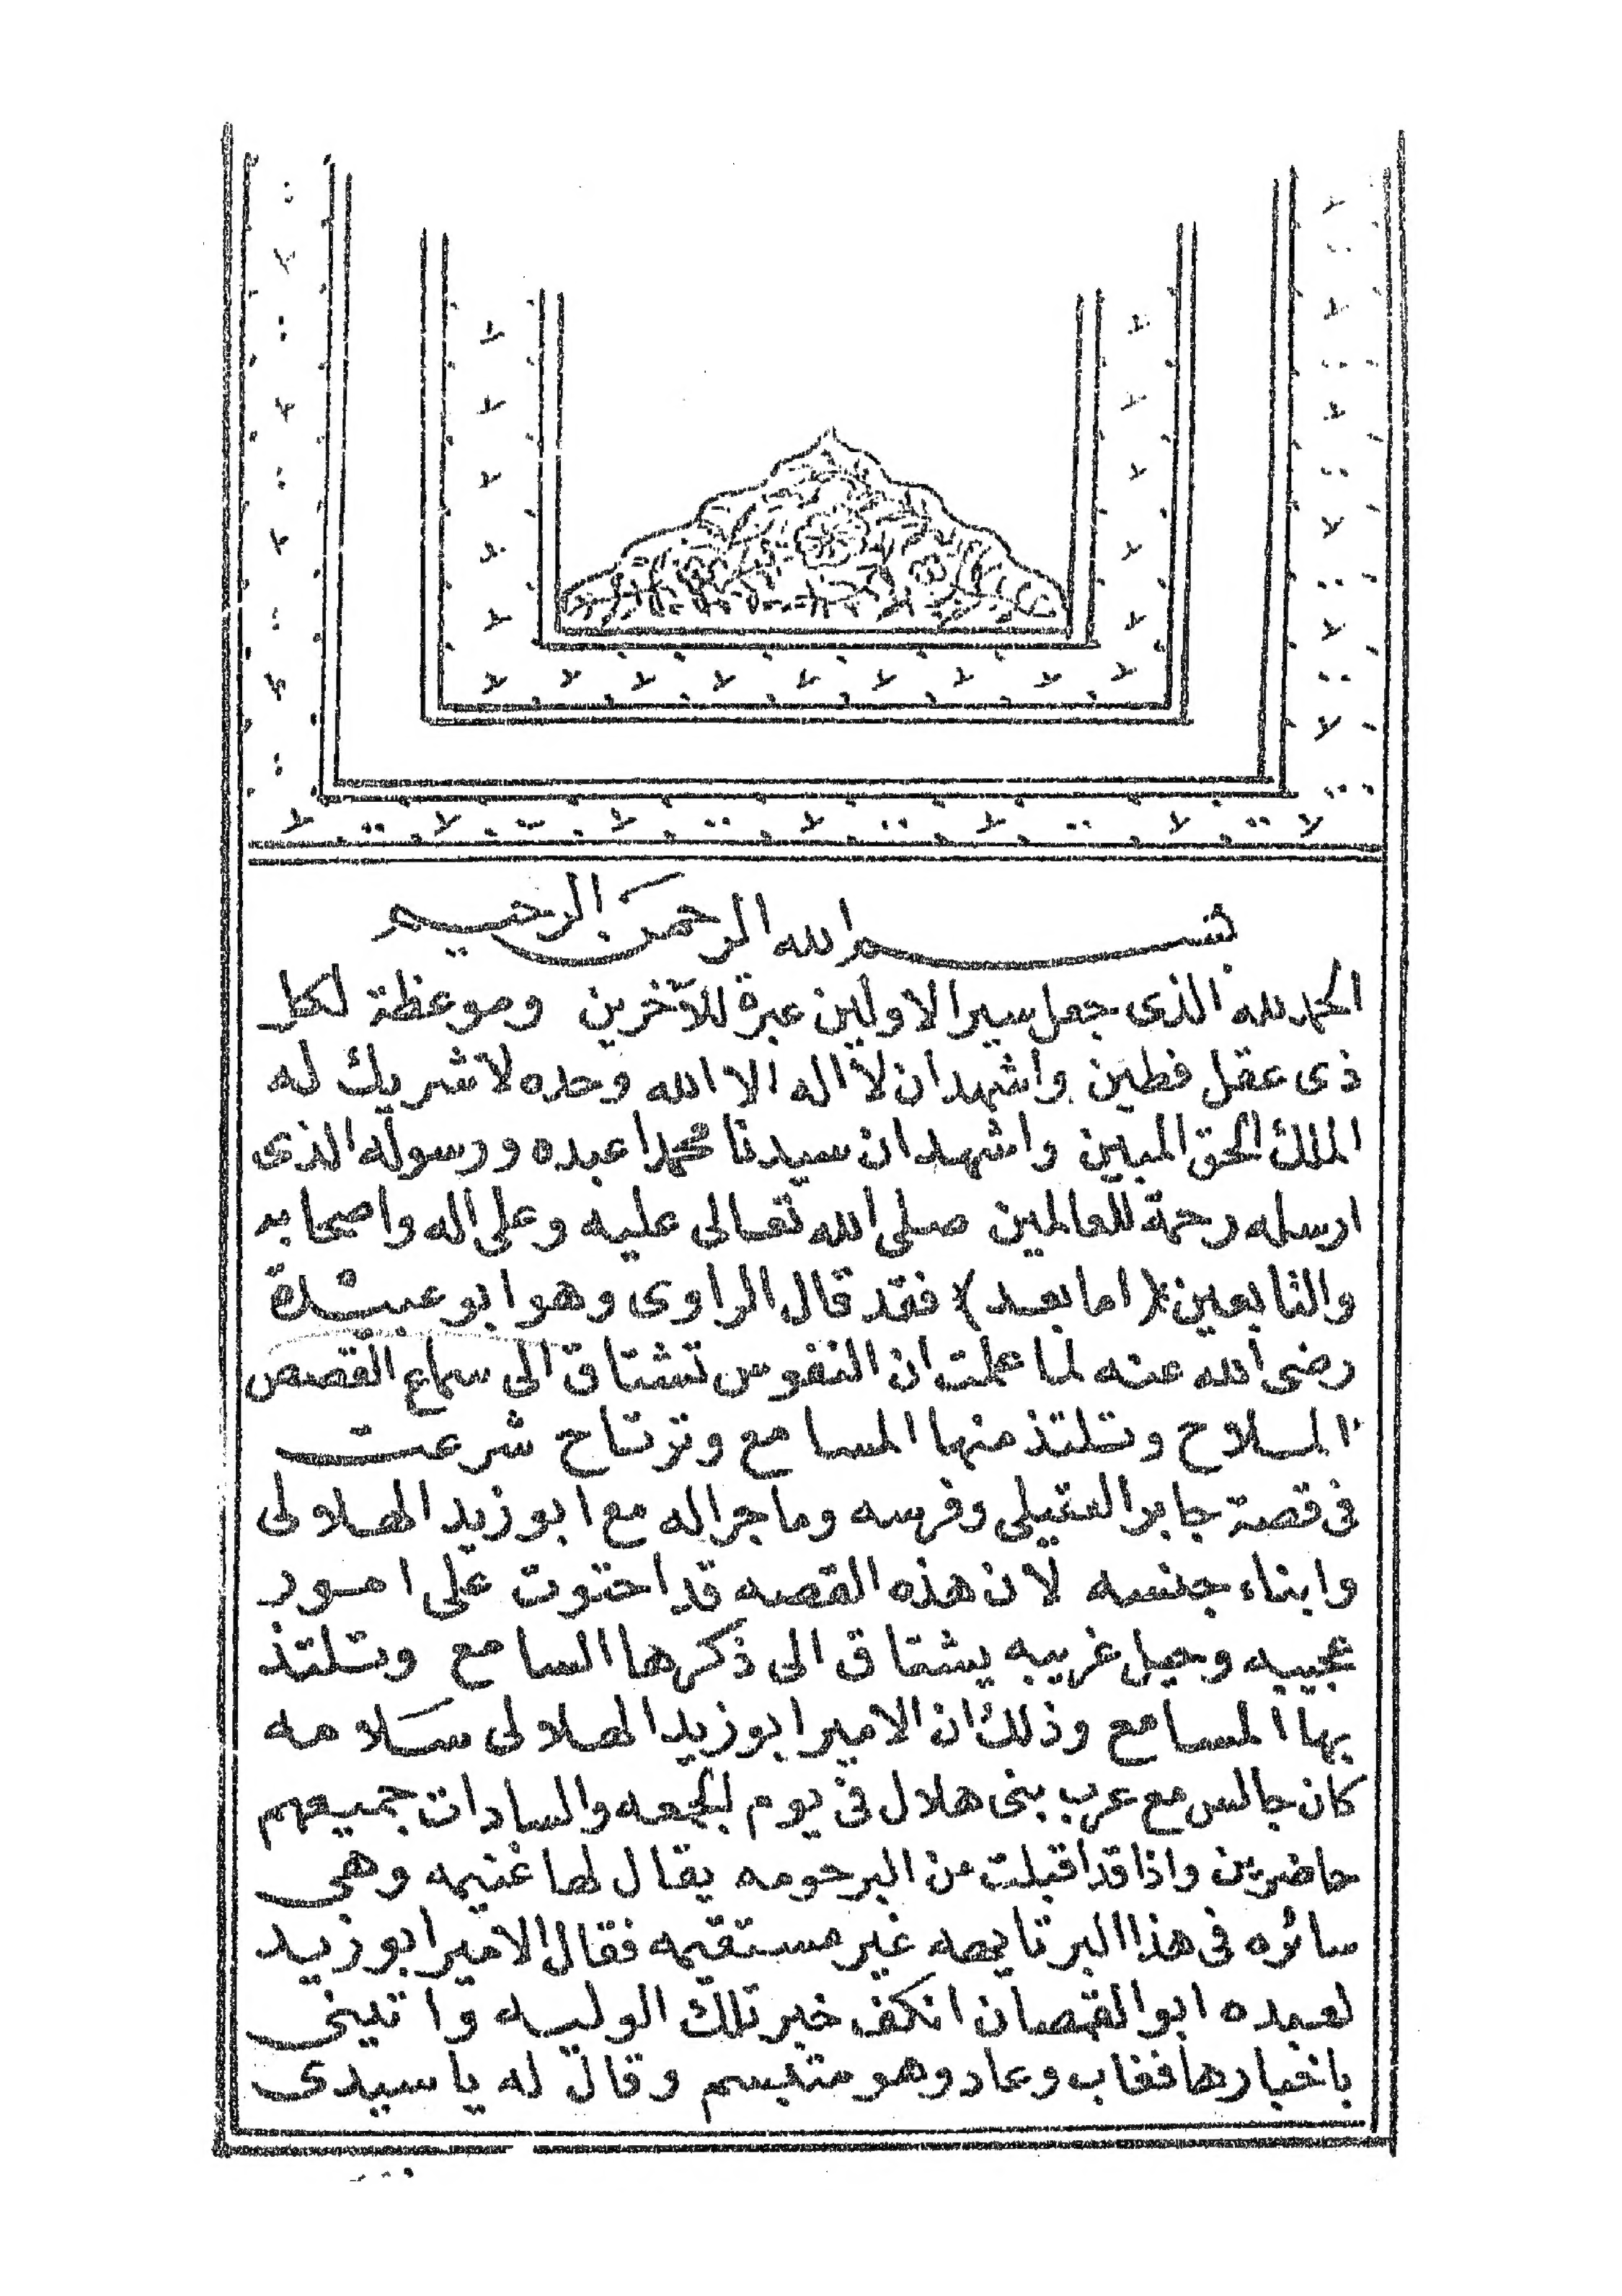 بسم الله الرحمن الرحيم
الحمد لله الذى جعل سير الاولين عبرة للآخرين وموعظة لكل
ذى عقل فطين واشهد ان لا اله الا الله وحده لا شريك له
الملك الحق المبين واشهد ان سيدنا محمدا عبده ورسوله الذى
ارسله رحمة للعالمين صلى الله تعالى عليه وعلى اله واصحابه
والتابعين (اما بعد) فقد قال الراوى وهو ابو عبيدة
رضى الله عنه لما علمت ان النفوس تشتاق الى سماع القصص
الملاح وتلتذ منها المسامع وترتاح شرعت
فى قصة جابر العقيلى وفرسه وما جرا له مع ابو زيد الهلالى
وابناء جنسه لان هذه القصه قد احتوت على امور
عجيبه وحيل غريبه يشتاق الى ذكرها السامع وتلتذ
بها المسامع وذلك ان الامير ابو زيد الهلالى سلامه
كان جالس مع عرب بنى هلال فى يوم الجمعه والسادات جميعهم
حاضرين واذا قد اقبلت من البر حرمه يقال لها غنيمه وهى
سائره فى هذا البر تايهه غير مستقيمه فقال الامير ابو زيد
لعبده ابو القمصان انكف خبر تلك الوليه واتينى
باخبارها فغاب وعاد وهو متبسم وقال له يا سيدى